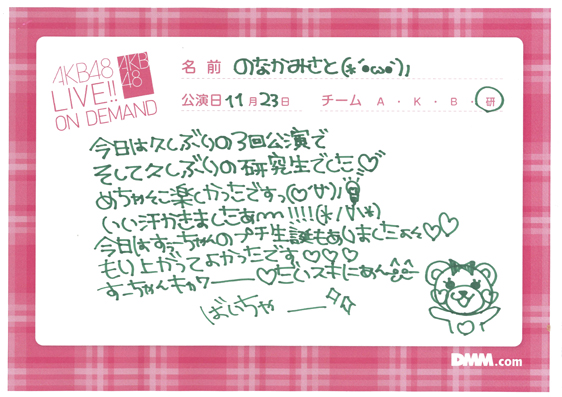 AKB48
LIVE!!
ON DEMAND
AKB
48
名前 のなかみさと(*´•ω•`)ﾉ
公演日 11月23日 チーム A・K・B・研
今日は久しぶりの3回公演で
そして久しぶりの研究生でした♡
めちゃんこ楽しかったですっ(♡'∀')ﾉ
いい汗かきましたあm !!!!(*ﾉ∀\*)
今日はすーちゃんのプチ生誕もありましたよん♡♡
もり上がってよかったです♡♡♡
すーちゃんキャワ──♡だいスキにあん
ばいちゃ──
DMM.com